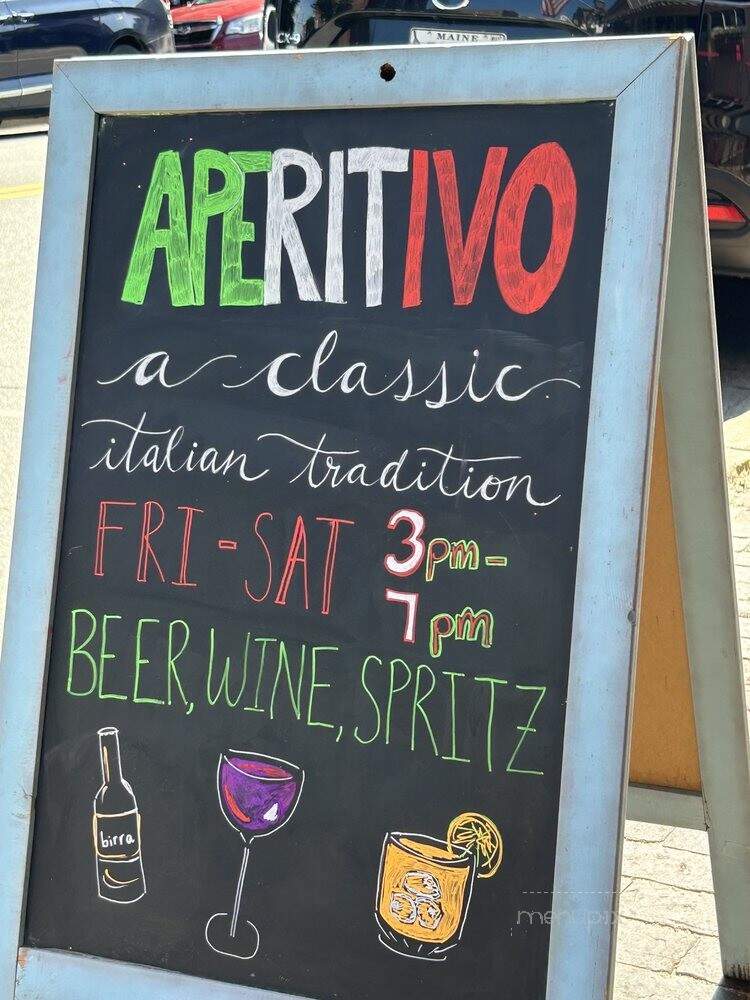 MAINE
APERITIVO
a classic
italian tradition
FRI-SAT 3pm-
7pm
BEER, WINE, SPRITZ
birra